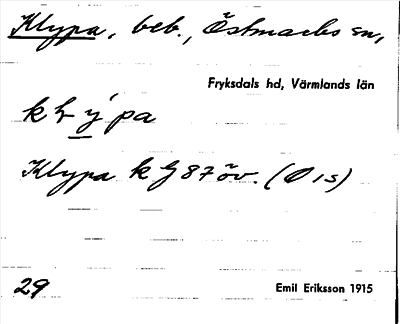 Klypa, beb., Östmarks sn,
Fryksdals hd, Värmlands län
k ý pa
Klypa k G 87 öv. (Ö 1 s)
29
Emil Eriksson 1915